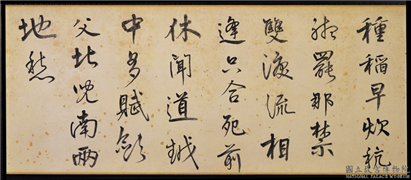 種稻早炊秔
湘罷那禁
雙淚流相
逢只合死前
休聞道越
中多賦斂
父北兒南兩
地愁
國立故宮博物院
NATIONAL PALACE MUSEUM